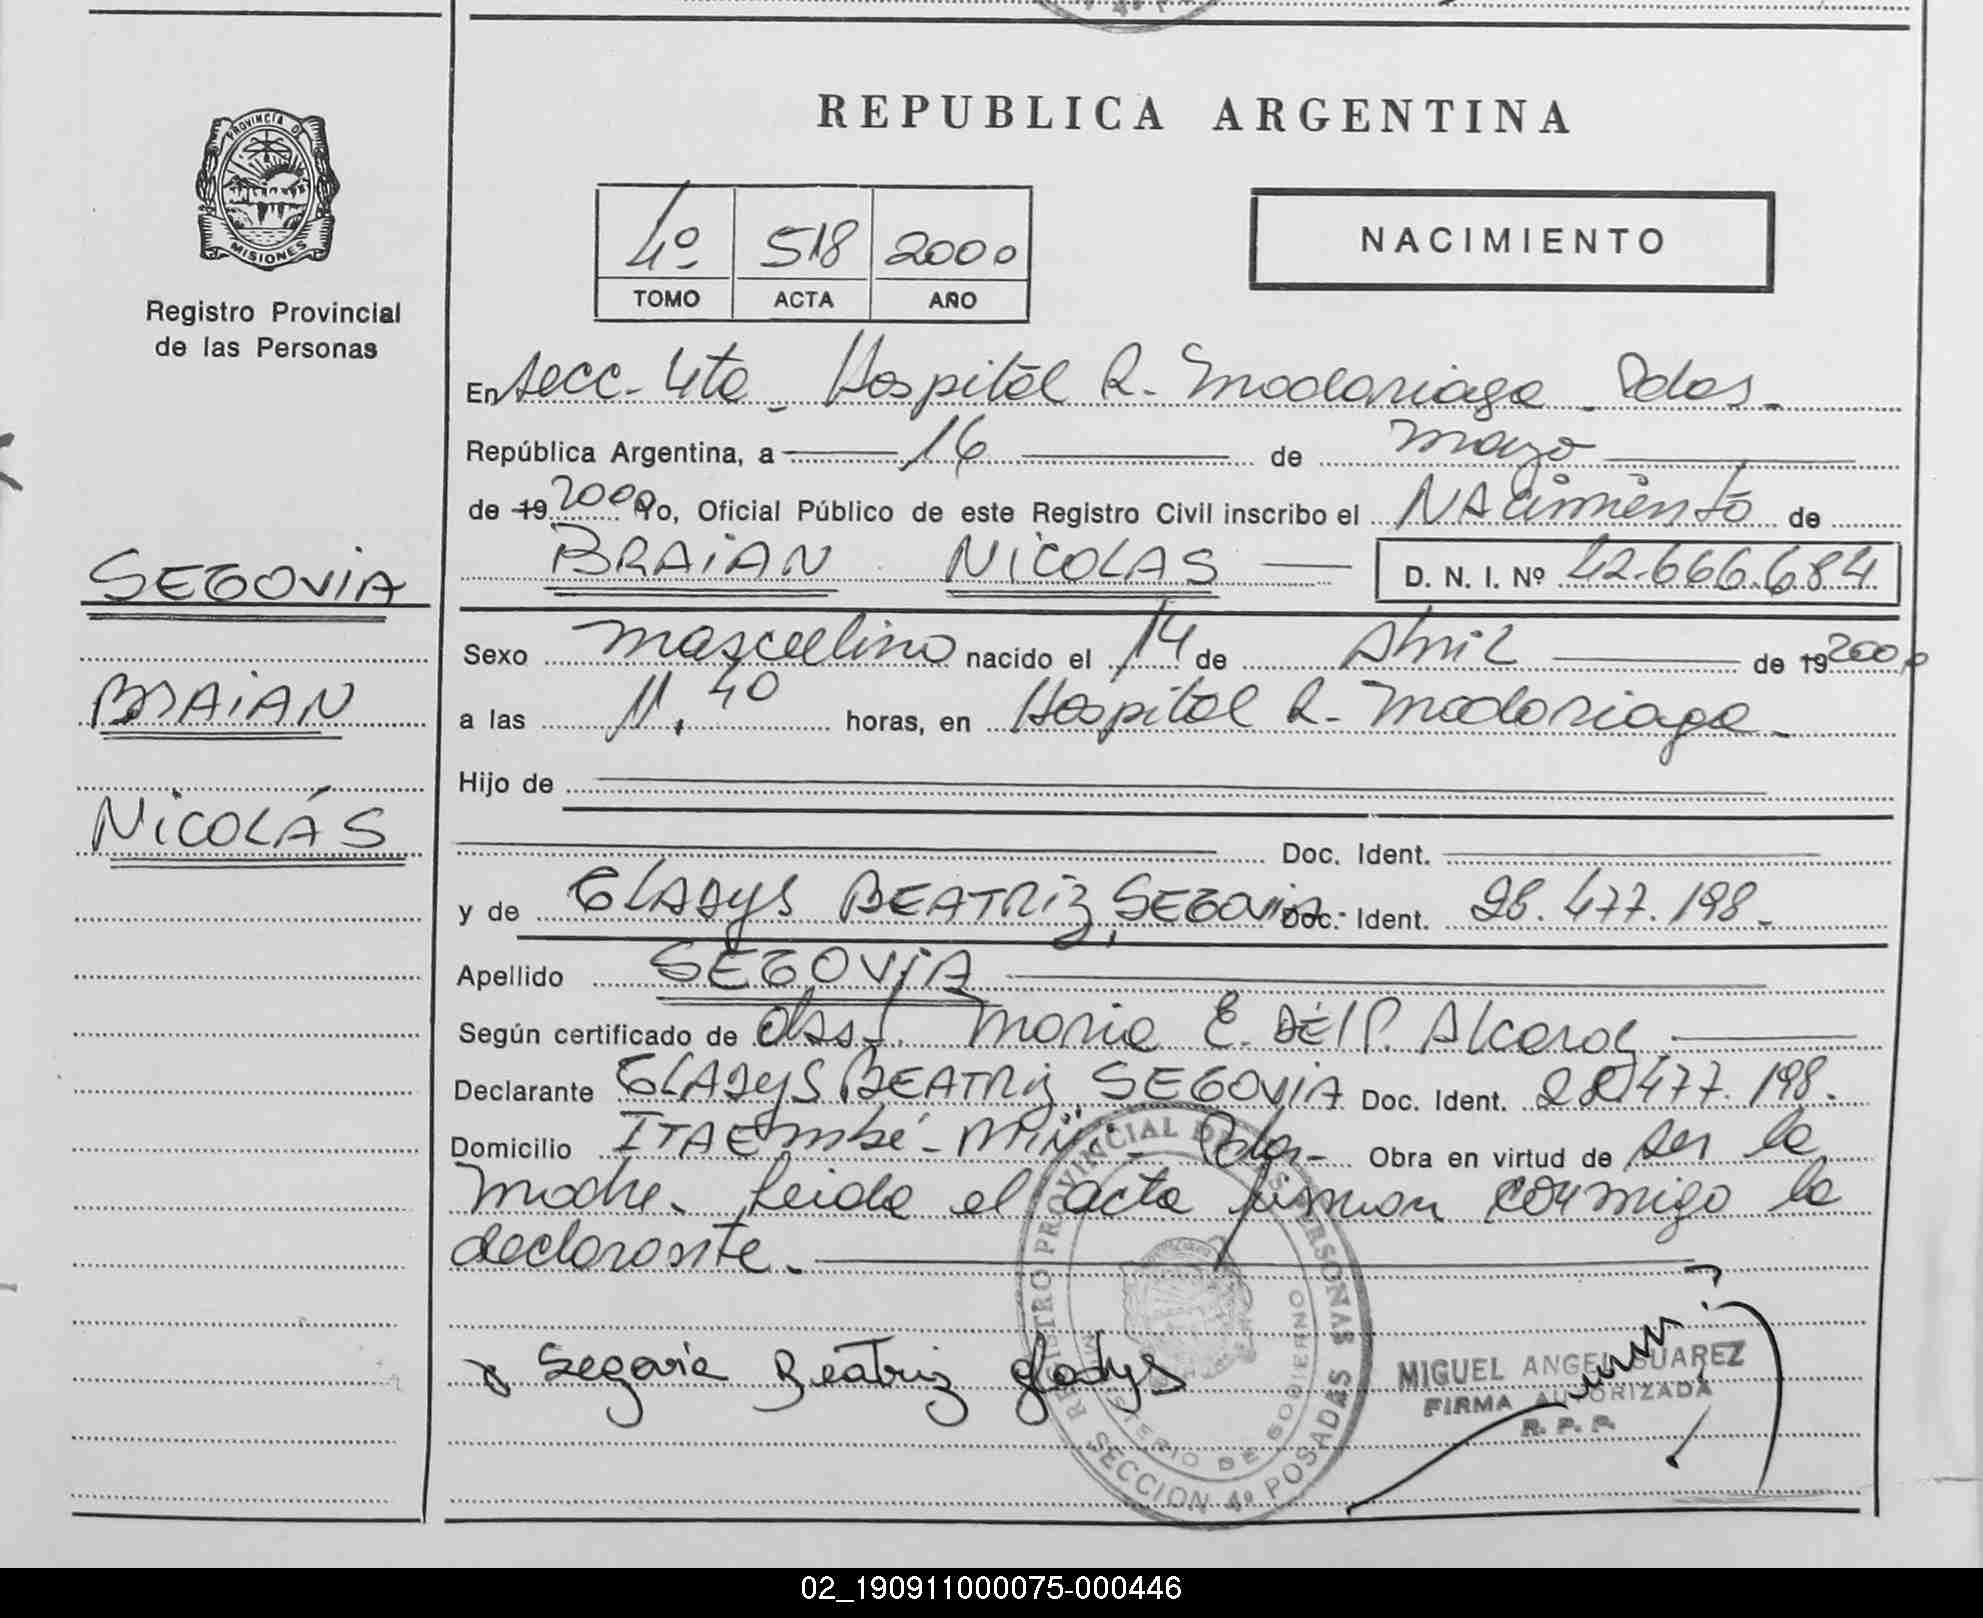 REPUBLICA ARGENTINA
PROVINCIA DE
MISIONES
Registro Provincial
de las Personas
4º 518 2000
TOMO ACTA AÑO
NACIMIENTO
En secc. 4ta - Hospital R. Madariaga - Pdas.
República Argentina, a 16 de mayo
de 19 2000 Yo, Oficial Público de este Registro Civil inscribo el NAcimiento de
BRAIAN NICOLAS D. N. I. Nº 42.666.684
SEGOVIA
BRAIAN
NICOLÁS
Sexo masculino nacido el 14 de Abril de 19 2000
a las 11,40 horas, en Hospital R. Madariaga.
Hijo de
Doc. Ident.
y de GLADYS BEATRIZ, SEGOVIA Doc. Ident. 28.477.198.
Apellido SEGOVIA
Según certificado de obst. Maria E. DEL P. Alcaraz
Declarante GLADYS BEATRIZ SEGOVIA Doc. Ident. 477.198.
Domicilio ITAEmbé - Miní - Pdas - Obra en virtud de ser la
madre. Leida el acta firman conmigo la
declarante.
x Segovia Beatriz gladys
MIGUEL ANGEL SUAREZ
FIRMA AUTORIZADA
R. P. P.
REGISTRO PROVINCIAL DE LAS PERSONAS
MINISTERIO DE GOBIERNO
SECCION 4º POSADAS
02_190911000075-000446